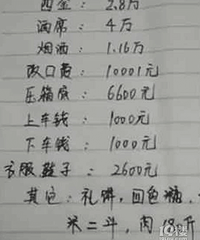 酉金：2.8万
酒席：4万
烟酒：1.16万
改口费：10001元
压箱底：6600元
上车钱：1000元
下车钱：1000元
衣服鞋子：2600元
其它：礼饼，回包糖，
米二斗，肉18斤